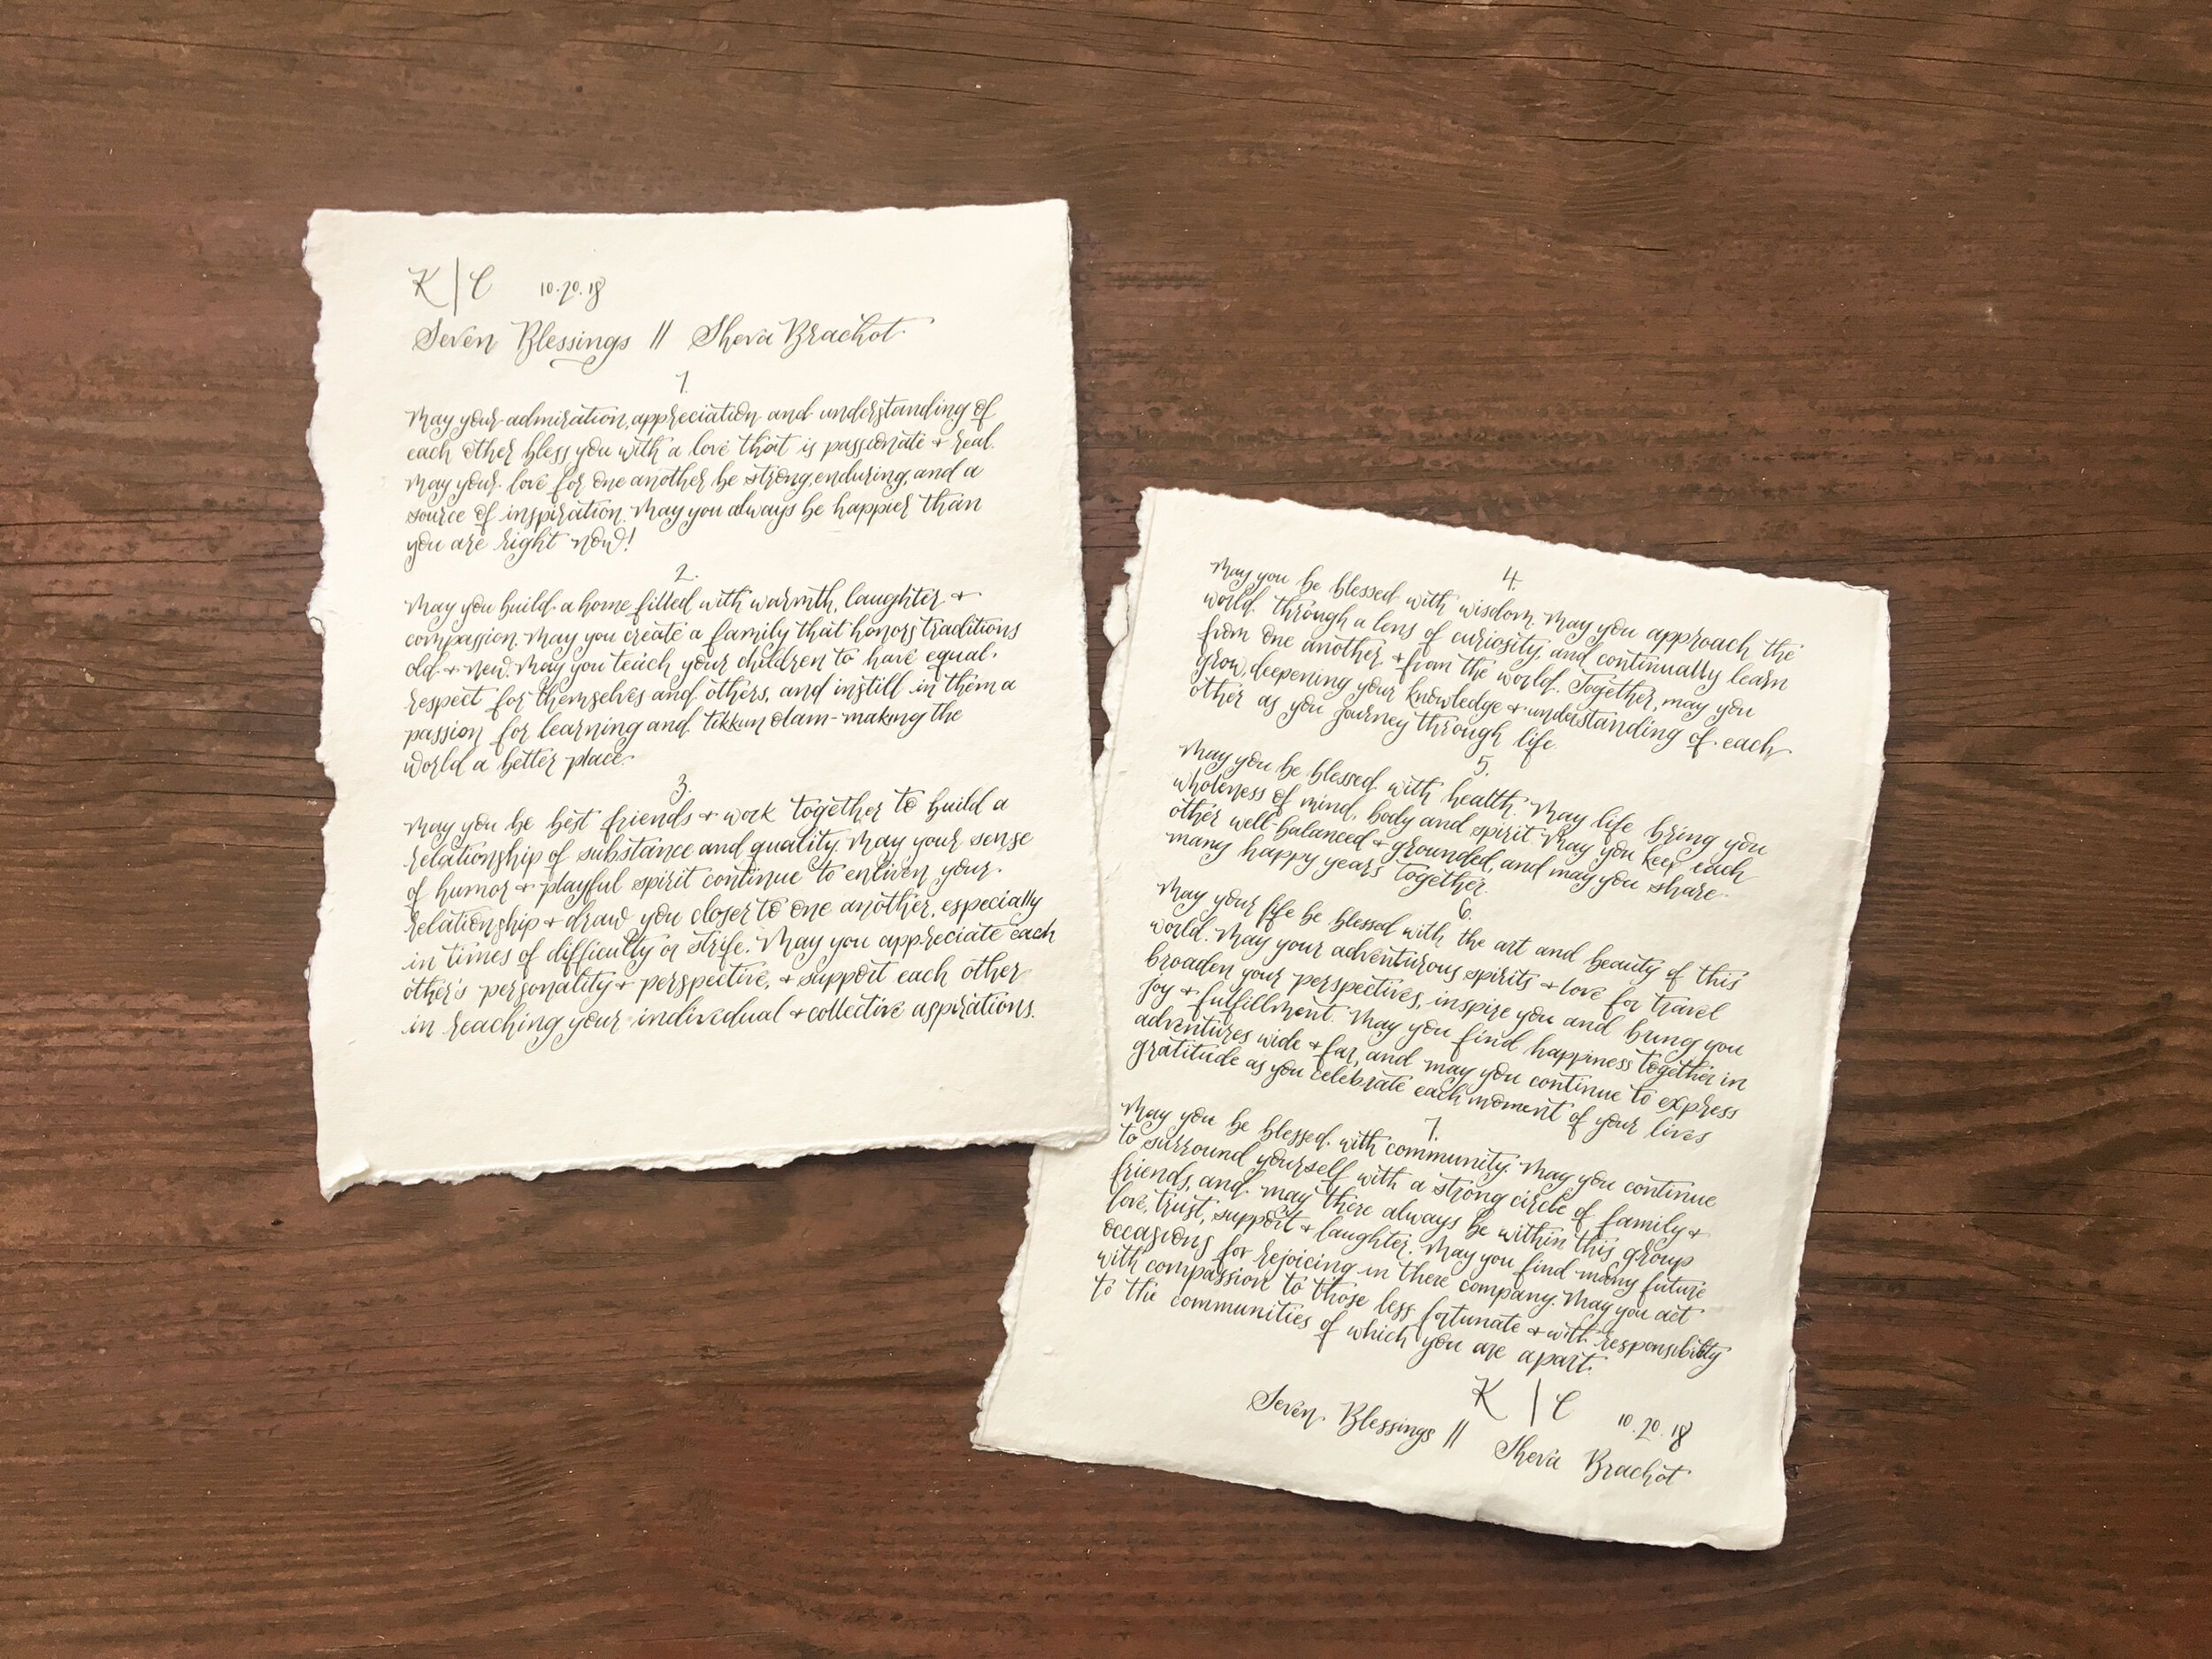 K | C 10.20.18
Seven Blessings || Sheva Brachot
1.
May your admiration, appreciation and understanding of
each other bless you with a love that is passionate + real.
May your love for one another be strong, enduring, and a
source of inspiration. May you always be happier than
you are right now!
2.
May you build a home filled with warmth, laughter +
compassion. May you create a family that honors traditions
old + new. May you teach your children to have equal
respect for themselves and others, and instill in them a
passion for learning and tikkun olam - making the
world a better place.
3.
May you be best friends + work together to build a
relationship of substance and quality. May your sense
of humor + playful spirit continue to enliven your
relationship + draw you closer to one another, especially
in times of difficulty or strife. May you appreciate each
other's personality + perspective, + support each other
in reaching your individual + collective aspirations.
4.
May you be blessed with wisdom. May you approach the
world through a lens of curiosity, and continually learn
from one another + from the world. Together, may you
grow, deepening your knowledge + understanding of each
other as you journey through life.
5.
May you be blessed with health. May life bring you
wholeness of mind, body and spirit. May you keep each
other well-balanced + grounded, and may you share
many happy years together.
6.
May your life be blessed with the art and beauty of this
world. May your adventurous spirits + love for travel
broaden your perspectives, inspire you and bring you
joy + fulfillment. May you find happiness together in
adventures wide + far, and may you continue to express
gratitude as you celebrate each moment of your lives
7.
May you be blessed with community. May you continue
to surround yourself with a strong circle of family +
friends, and may there always be within this group
love, trust, support + laughter. May you find many future
occasions for rejoicing in there company. May you act
with compassion to those less fortunate + with responsibility
to the communities of which you are apart.
K | C 10.20.18
Seven Blessings || Sheva Brachot